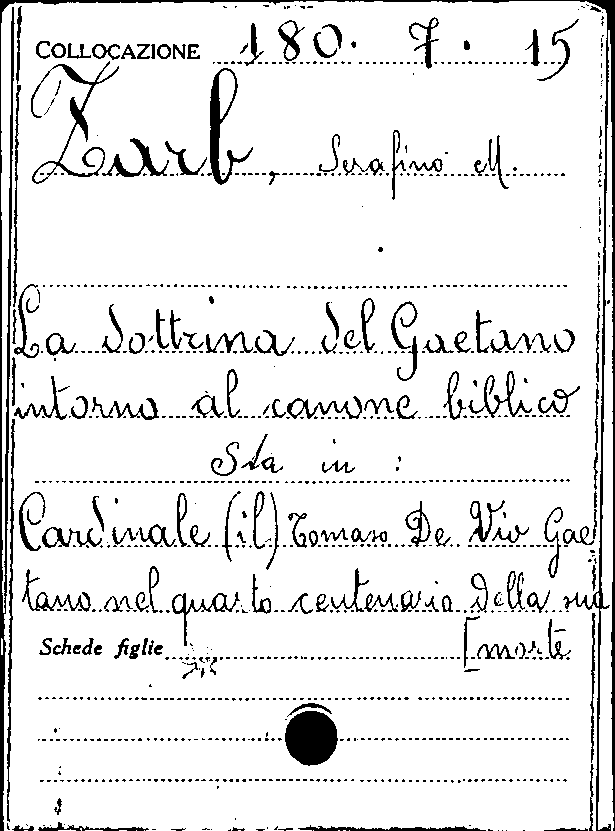 COLLOCAZIONE 180. 7. 15
Zarb, Serafino M.
La dottrina del Gaetano
intorno al canone biblico
Sta in :
Cardinale (il) Tomaso De Vio Gae
tano nel quarto centenario della sua
Schede figlie [morte